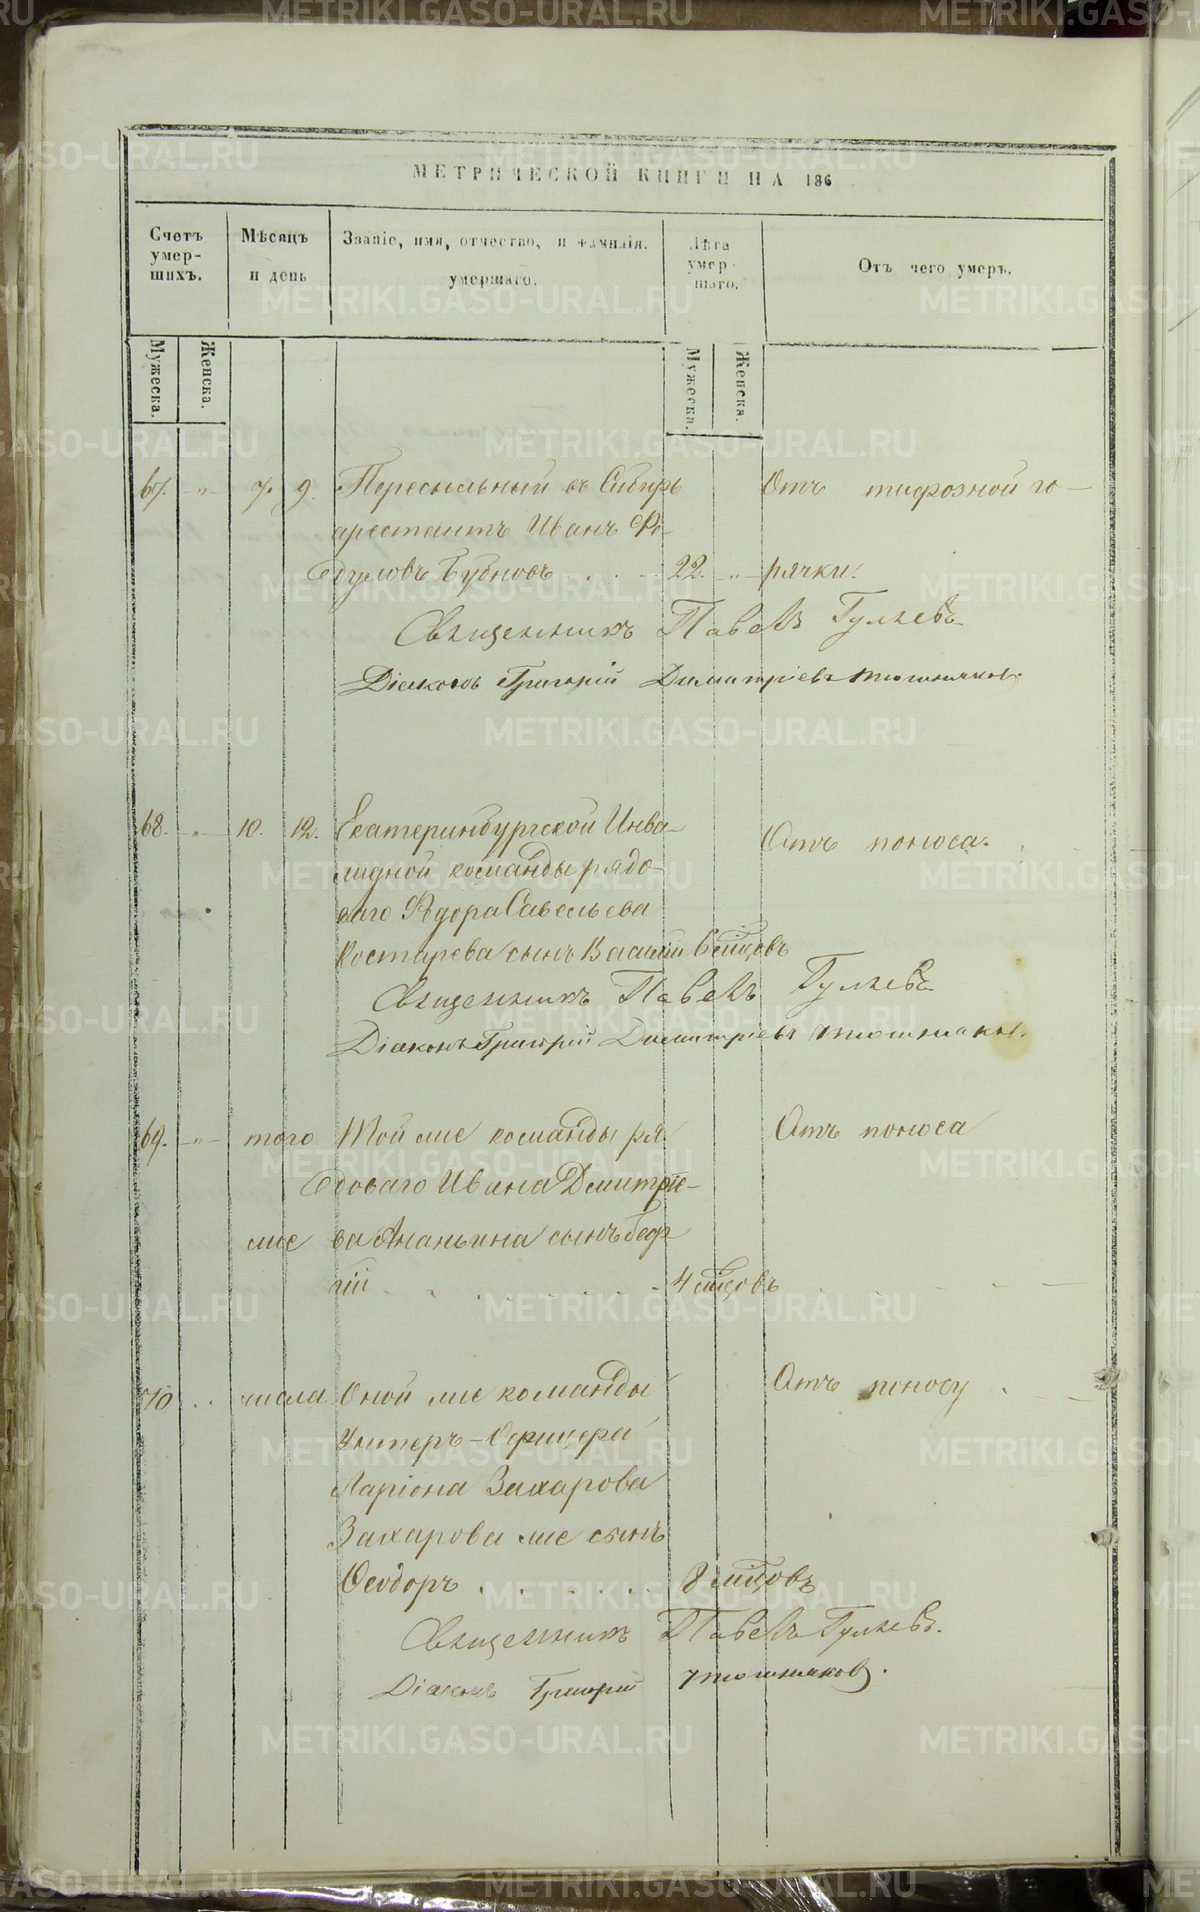 МЕТРИЧЕСКОЙ КНИГИ НА 186
Счетъ умер-шихъ. Мѣсяцъ и день Званіе, имя, отчество, и фамилія. умершаго. Лѣта умер-шаго. Отъ чего умеръ.
Мужеска. Женска. Мужеска. Женска.
67. „ 7. 9. Пересыльный въ Сибирь Отъ тифозной го-
арестантъ Иванъ Фе-
дуловъ Бубновъ . . . 22. „ рячки.
Священникъ Павелъ Гуляевъ
Діаконъ Григорій Димитріевъ
68. „ 10. 12. Екатеринбургской Инва- Отъ поноса.
лидной команды рядо-
ваго Ѳедора Савельева
Костарева сынъ Василій 6 мѣсцовъ
Священникъ Павелъ Гуляевъ
Діаконъ Григорій Димитріевъ
69. „ того Той же команды ря- Отъ поноса
доваго Ивана Дмитріе-
же ва Ананьина сынъ Геор-
гій . . . . . . 4 мѣсцовъ
70 . . числа Оной же команды Отъ поносу
Унтеръ-Офицера
Ларіона Захарова
Захарова же сынъ
Ѳеодоръ . . . . . . 8 мѣсцовъ
Священникъ Павелъ Гуляевъ.
Діаконъ Григорій
METRIKI.GASO-URAL.RU